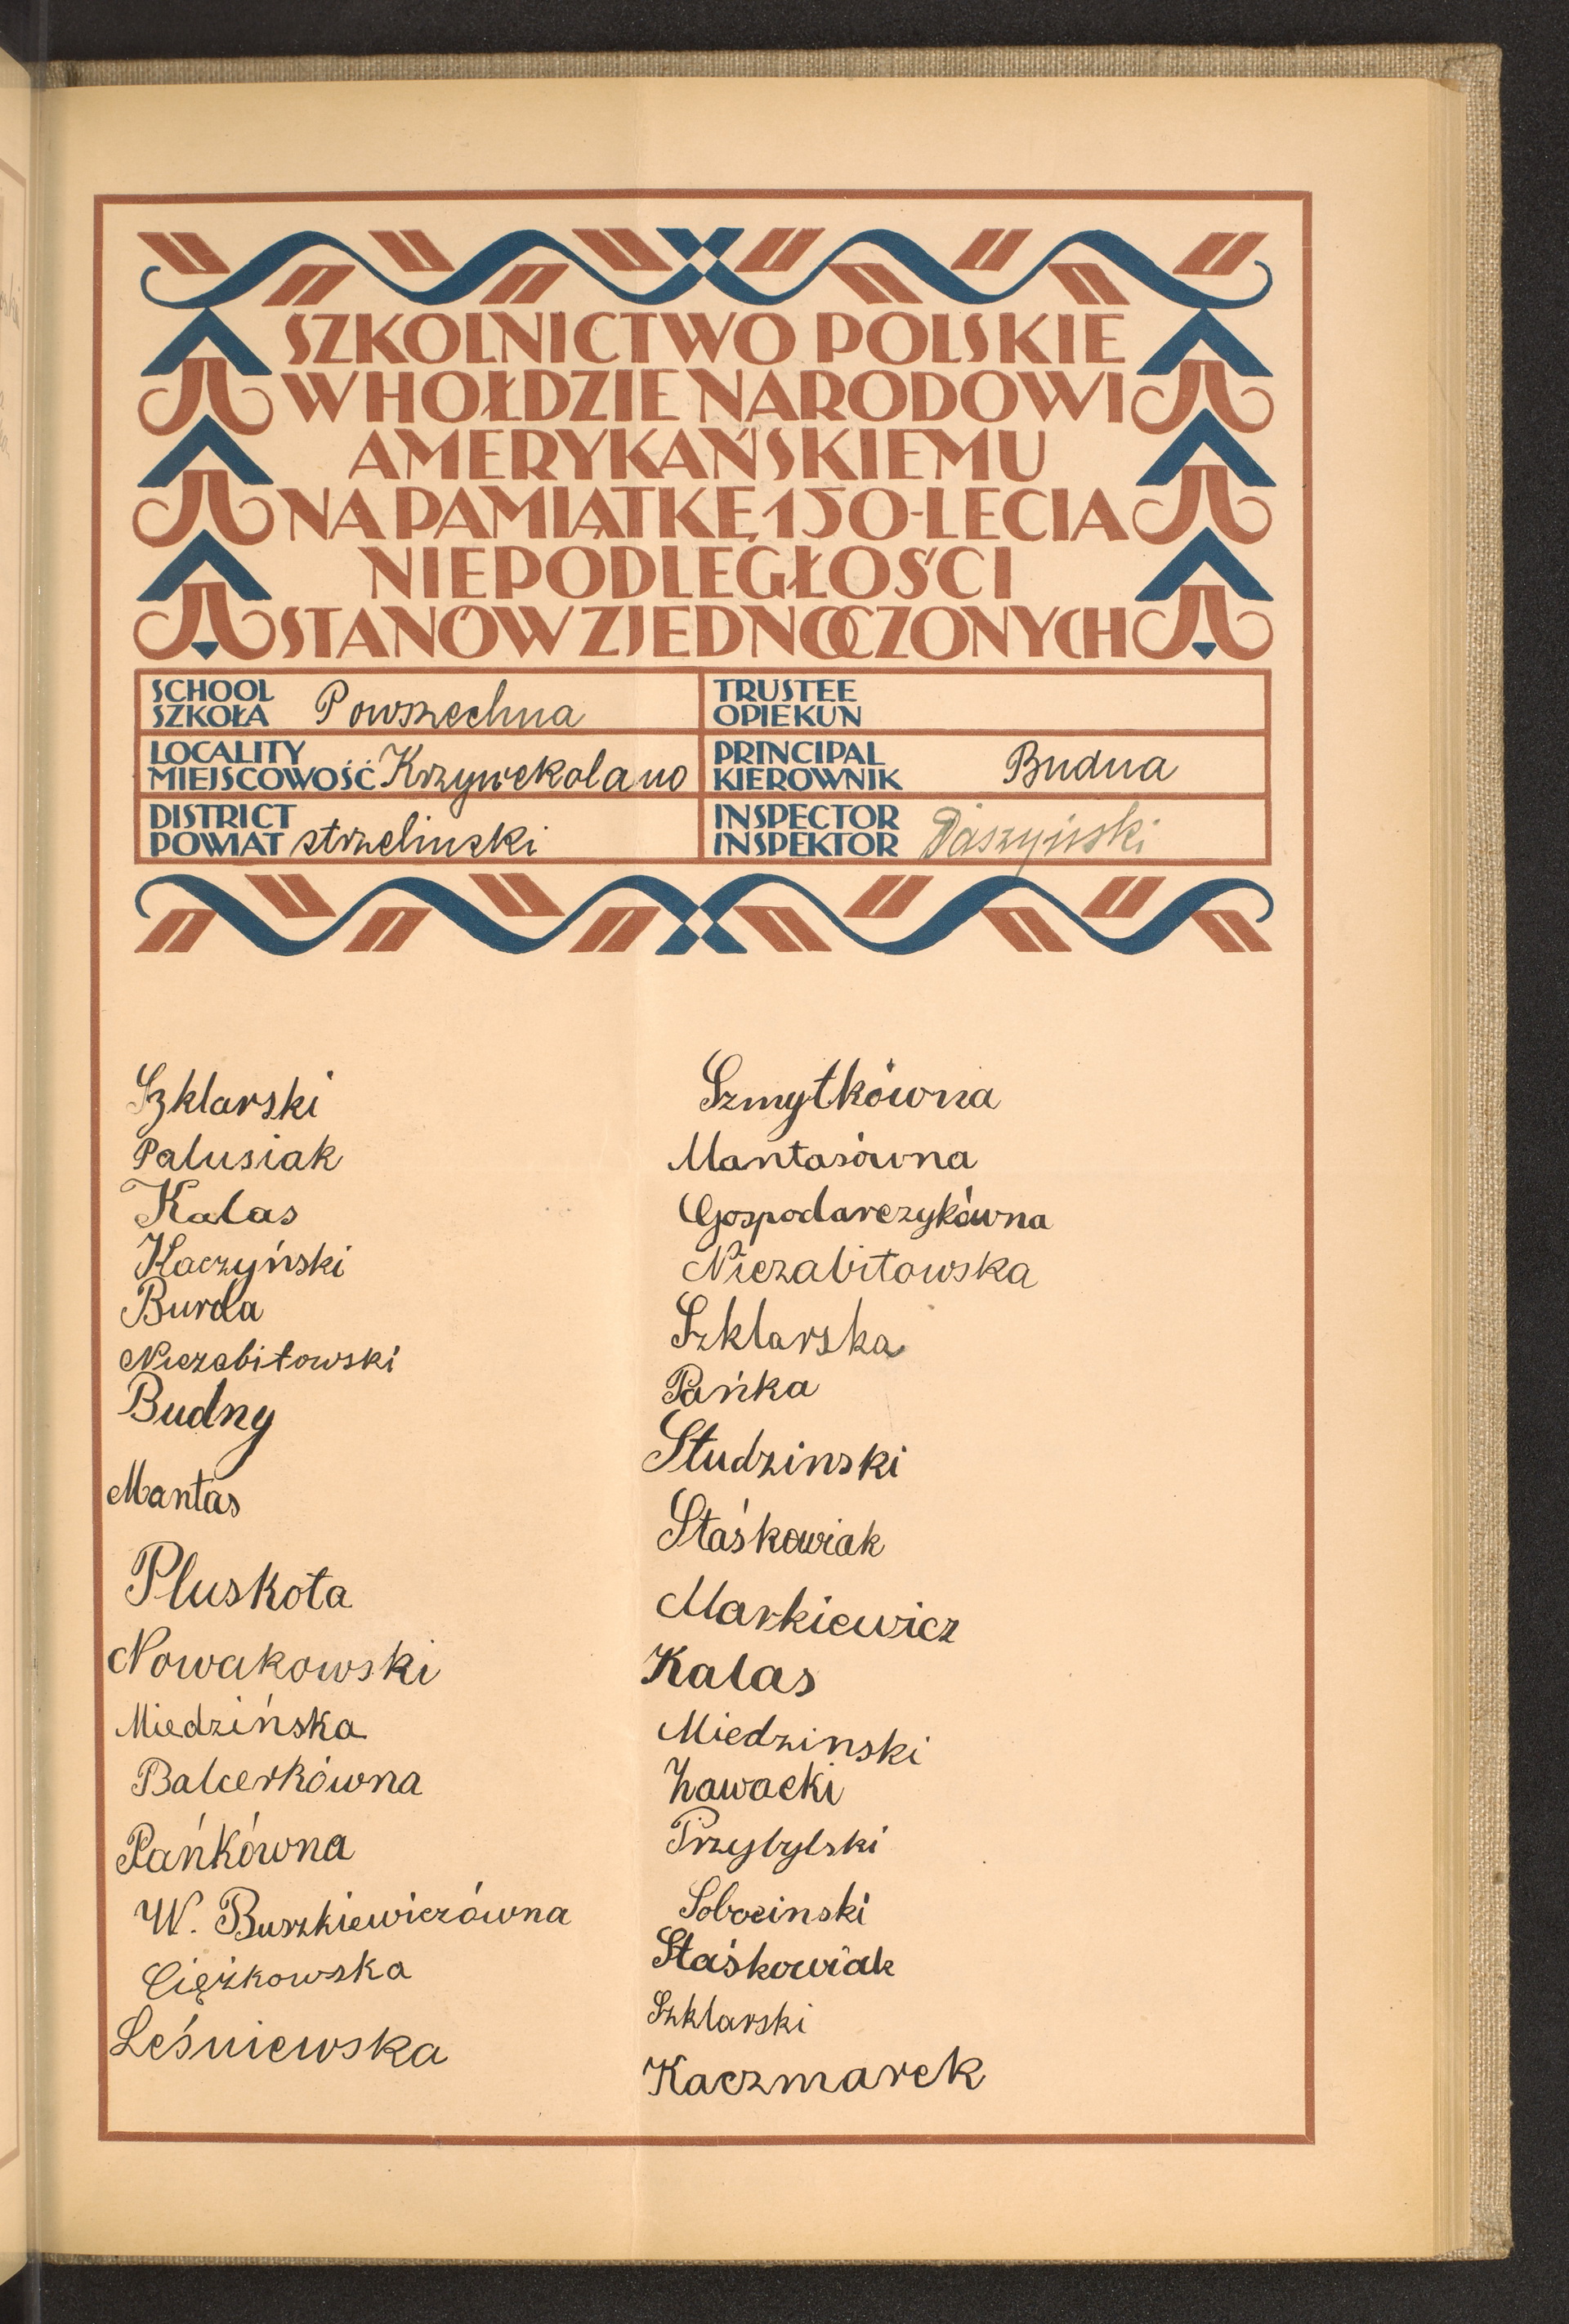 SZKOLNICTWO POLSKIE
W HOŁDZIE NARODOWI
AMERYKAŃSKIEMU
NA PAMIĄTKĘ 150-LECIA
NIEPODLEGŁOŚCI
STANÓW ZJEDNOCZONYCH
SCHOOL
SZKOŁA Powszechna
TRUSTEE
OPIEKUN
LOCALITY
MIEJSCOWOŚĆ Krzywekolano
PRINCIPAL
KIEROWNIK Budna
DISTRICT
POWIAT strzelinski
INSPECTOR
INSPEKTOR Daszyński
Szklarski
Palusiak
Kalas
Kaczyński
Burda
Niezabitowski
Budny
Mantas
Pluskota
Nowakowski
Miedzińska
Balcerkówna
Pańkówna
W. Buszkiewiczówna
Ciężkowska
Leśniewska
Szmytkówna
Mantasówna
Gospodarczykówna
Niezabitowska
Szklarska
Pańka
Studzinski
Staśkowiak
Markiewicz
Kalas
Miedzinski
Zawacki
Przybylski
Sobocinski
Staśkowiak
Szklarski
Kaczmarek